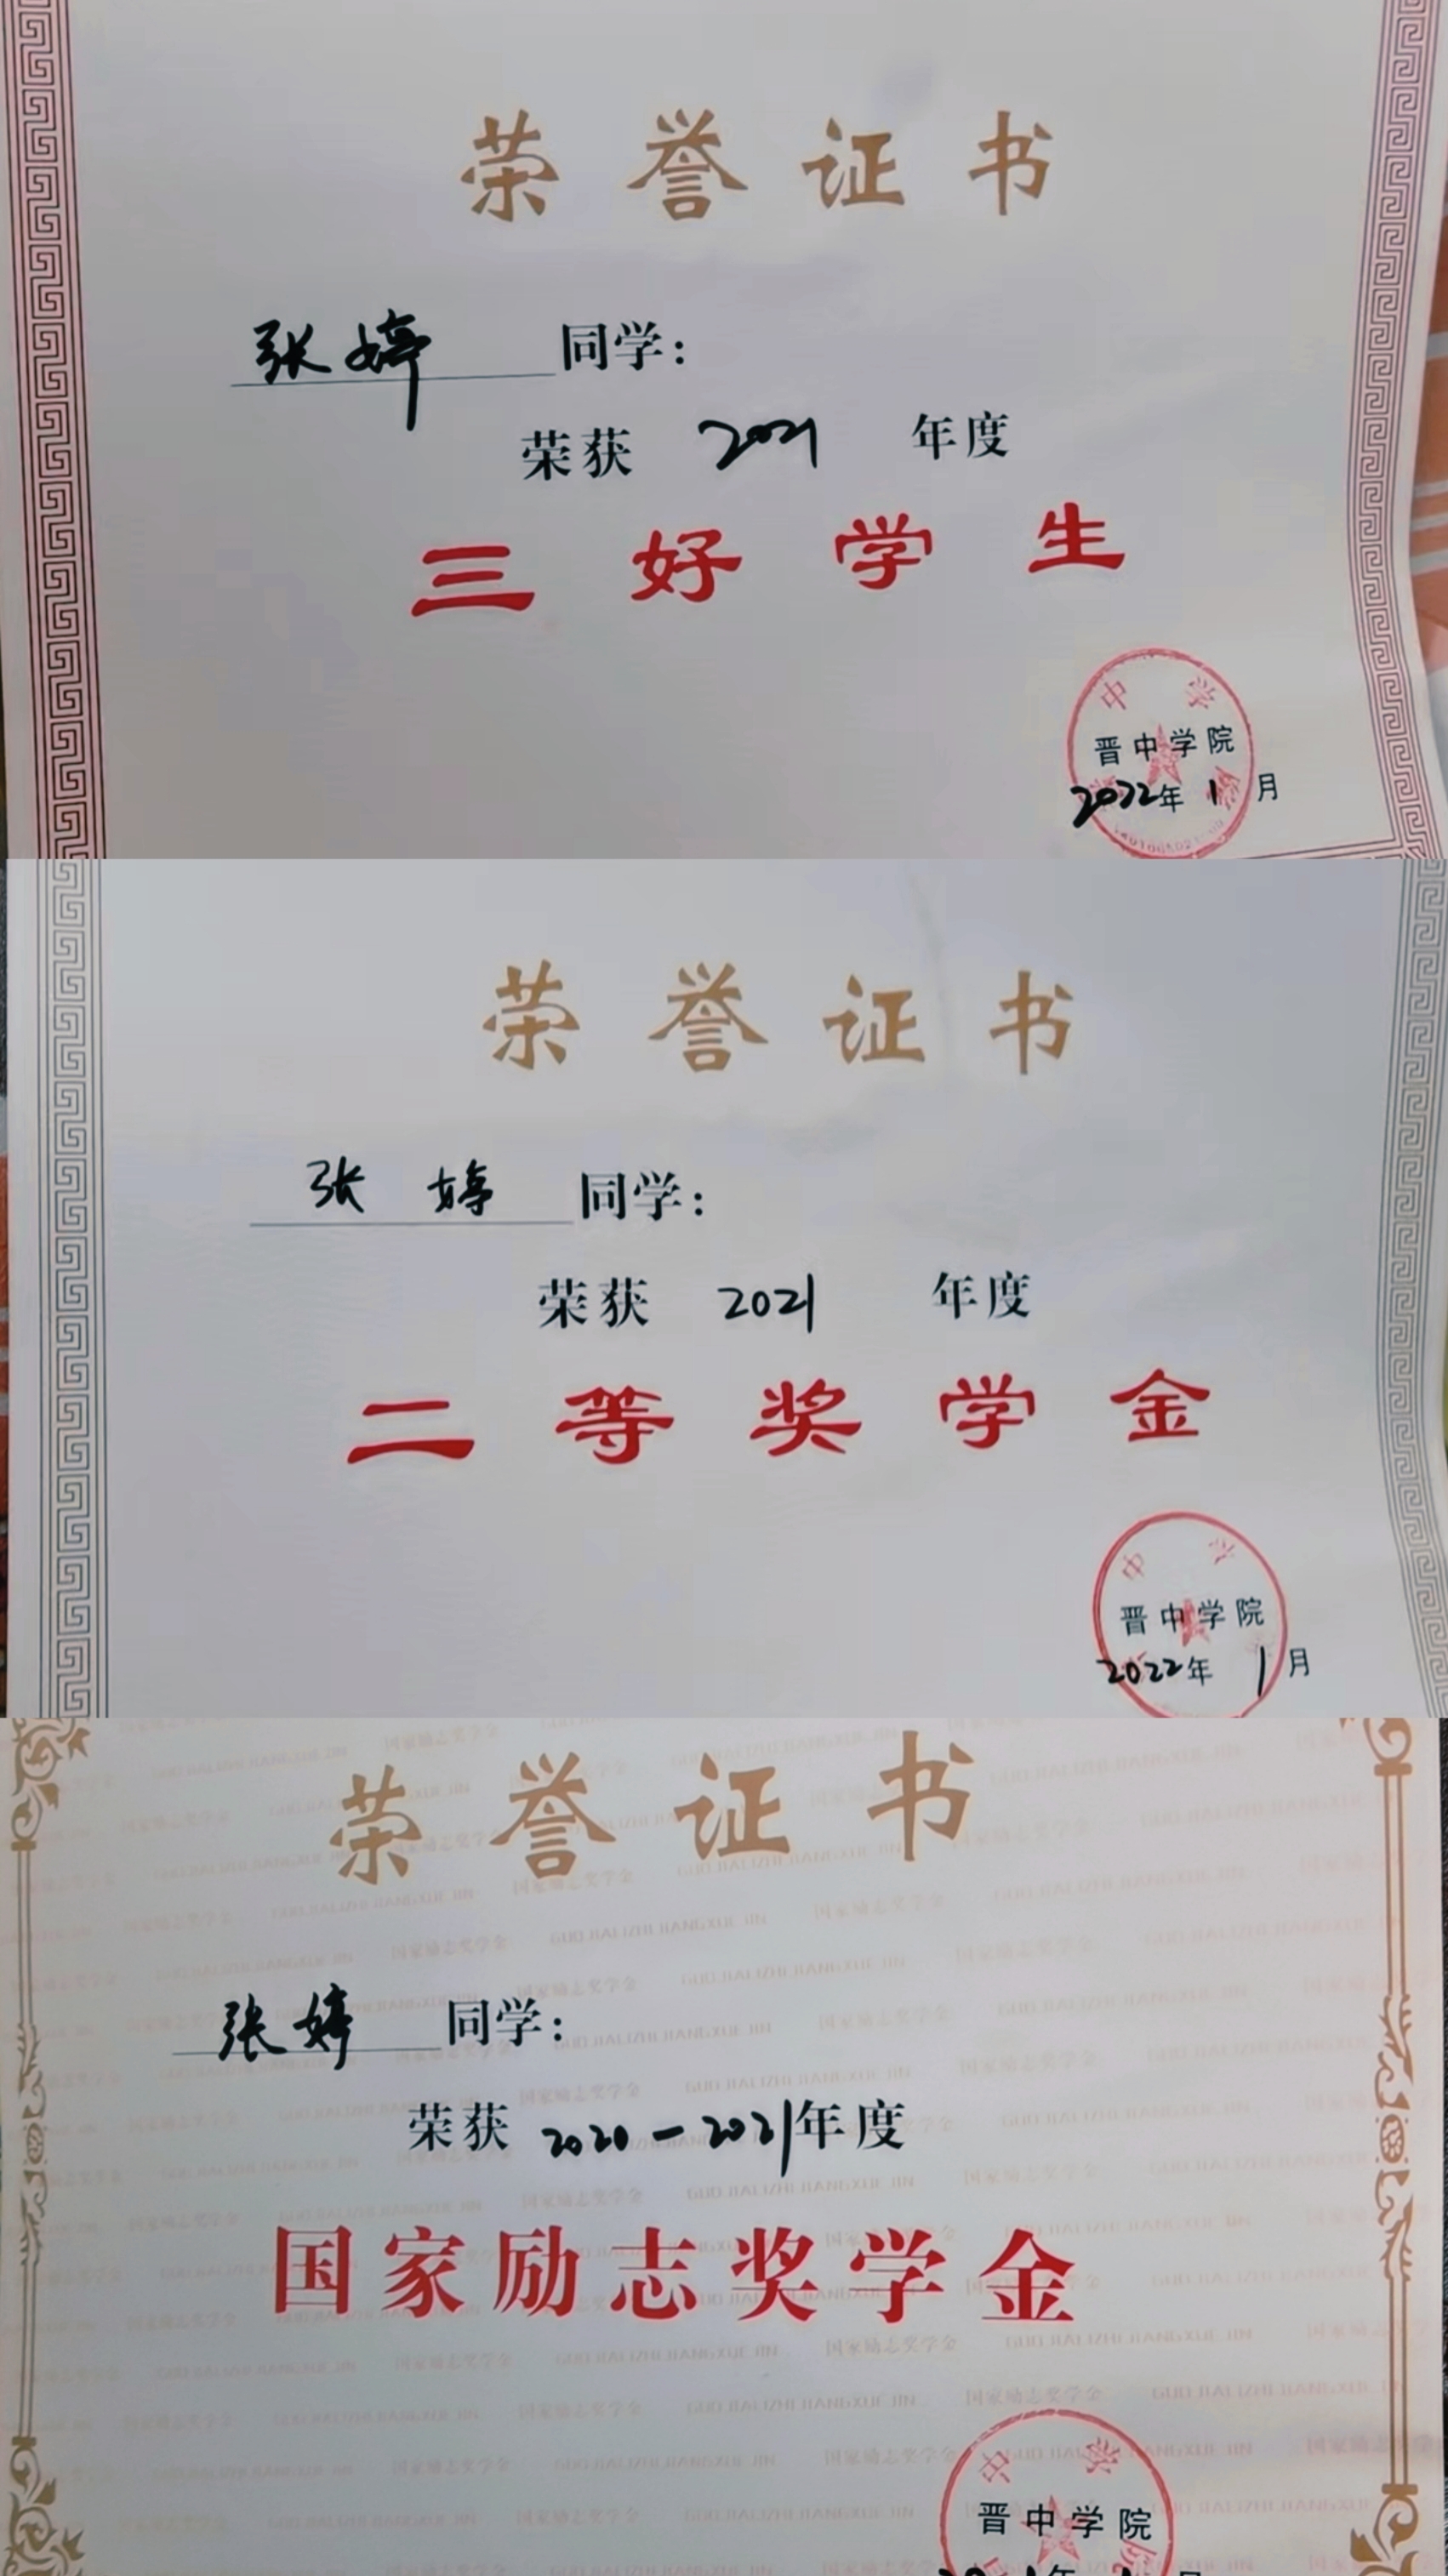 荣誉证书
张婷 同学：
荣获 2021 年度
三好学生
晋中学院
2022年 1 月
荣誉证书
张婷 同学：
荣获 2021 年度
二等奖学金
晋中学院
2022年 1 月
荣誉证书
张婷 同学：
荣获 2020-2021年度
国家励志奖学金
晋中学院